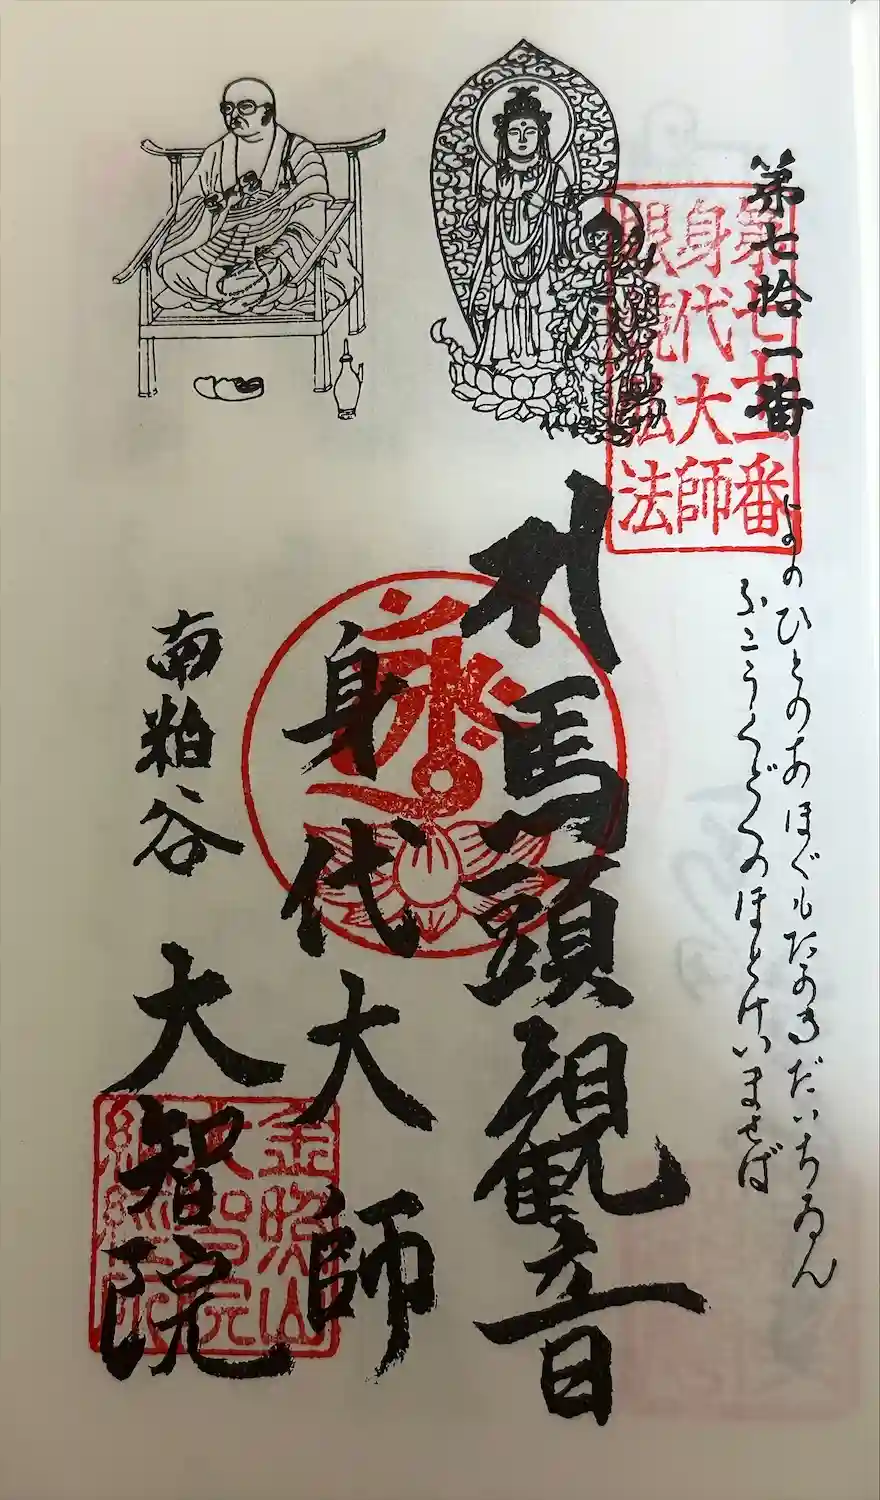 第七拾一番
第七十一番
身代大師
眼鏡弘法
よのひとのあほぐもたかきだいちゐん
ふこうくどくのほとけいませば
馬頭観音
身代大師
南粕谷
大智院
金照山
大智院